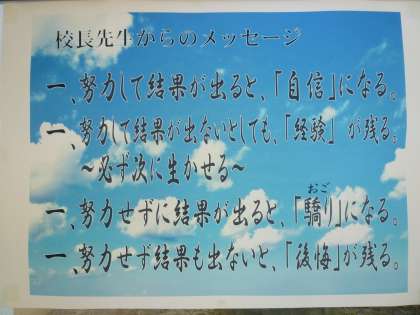 校長先生からのメッセージ
一、努力して結果が出ると、「自信」になる。
一、努力して結果が出ないとしても、「経験」が残る。
～必ず次に生かせる～
おご
一、努力せずに結果が出ると、「驕り」になる。
一、努力せず結果も出ないと、「後悔」が残る。